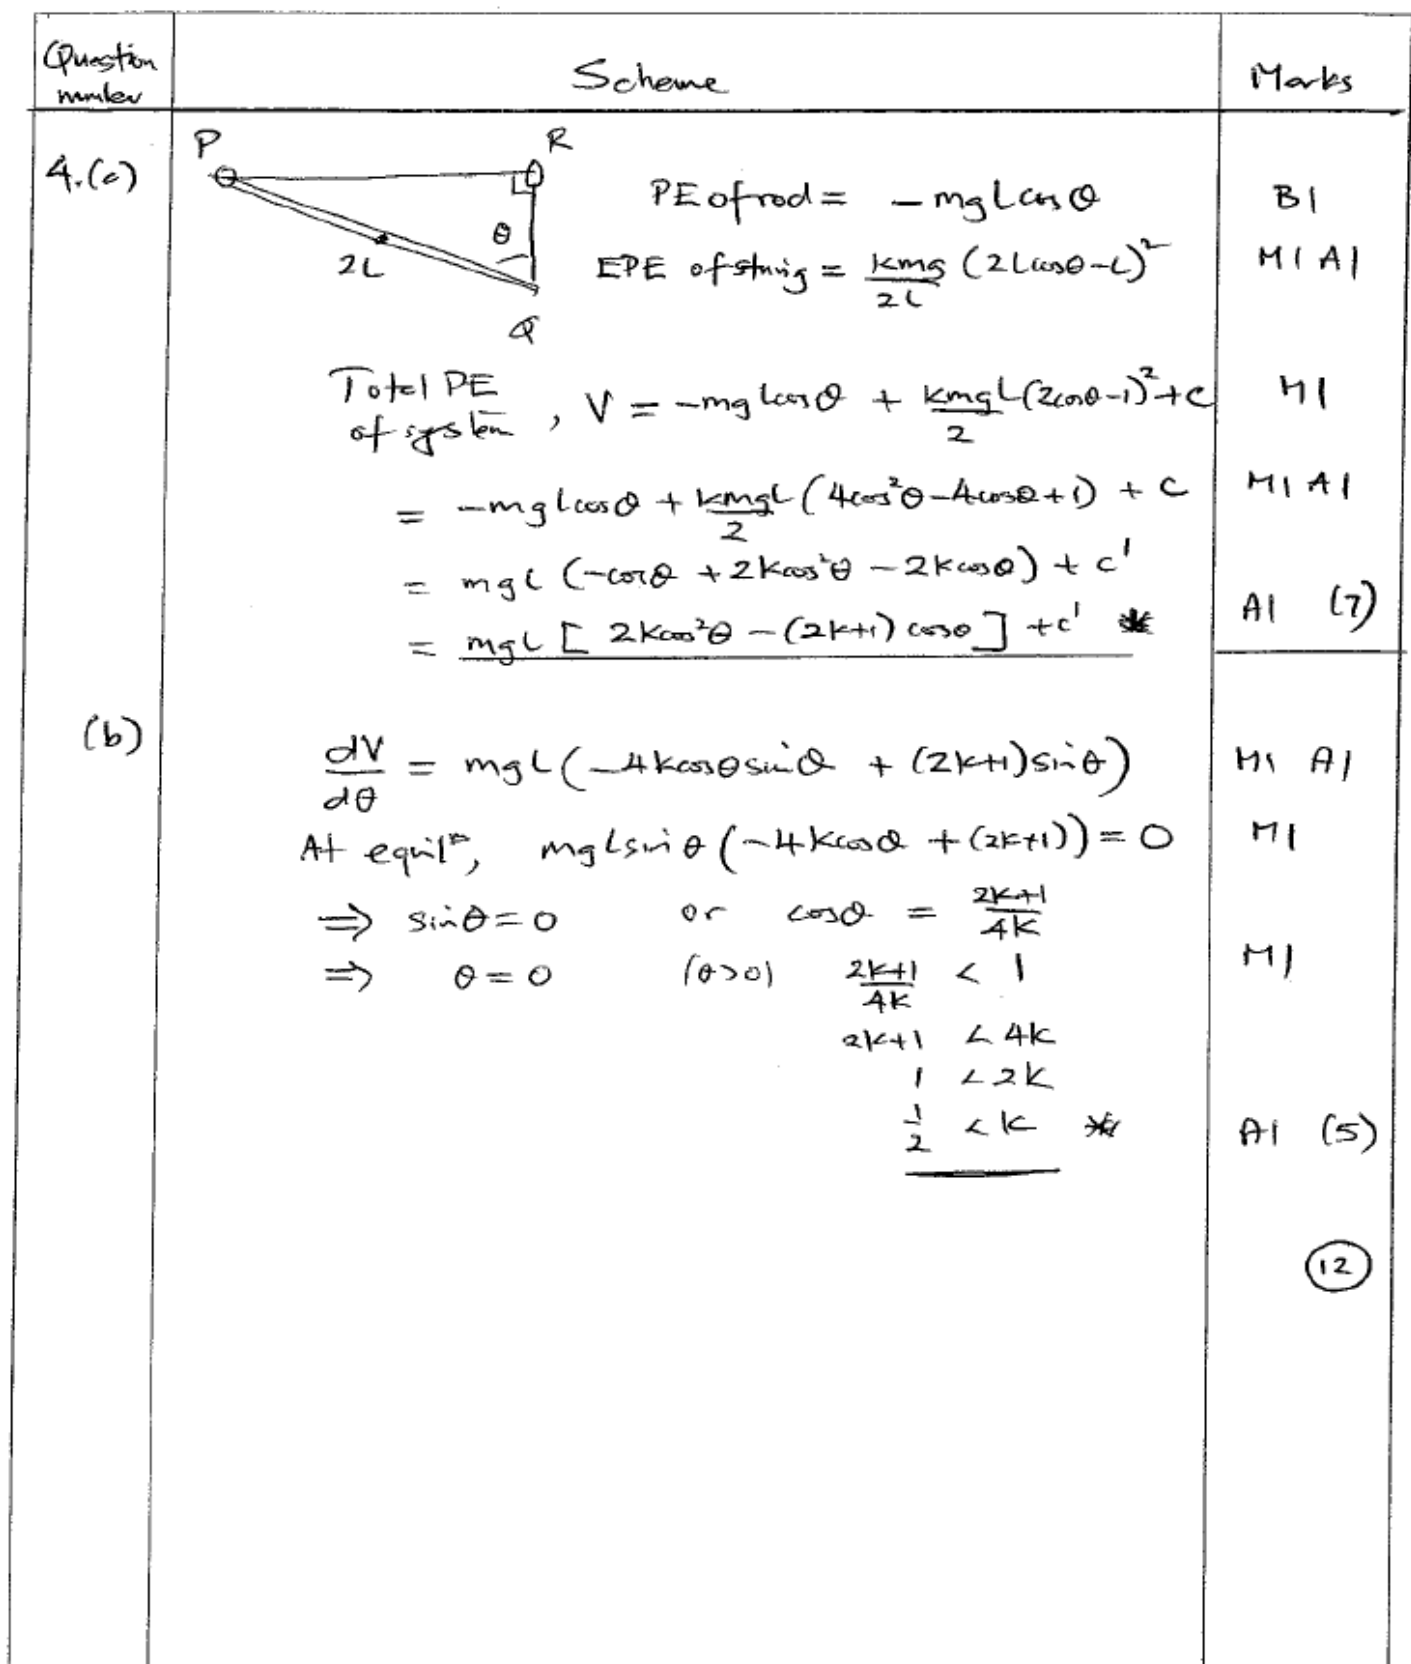 Question number
Scheme
Marks
4.(a)
P
R
θ
2L
Q
PE of rod = -mgLcosθ
B1
EPE of string = kmg/2L (2Lcosθ-L)²
M1 A1
Total PE of system, V = -mgLcosθ + kmgL/2 (2cosθ-1)² + c
M1
= -mgLcosθ + kmgL/2 (4cos²θ-4cosθ+1) + c
M1 A1
= mgL (-cosθ + 2kcos²θ - 2kcosθ) + c'
= mgL [ 2kcos²θ - (2k+1) cosθ ] + c' *
A1 (7)
(b)
dV/dθ = mgL(-4kcosθsinθ + (2k+1)sinθ)
M1 A1
At equilᵐ, mgLsinθ(-4kcosθ + (2k+1)) = 0
M1
⇒ sinθ = 0 or cosθ = 2k+1/4k
⇒ θ = 0 (θ>0) 2k+1/4k < 1
M1
2k+1 < 4k
1 < 2k
1/2 < k *
A1 (5)
12